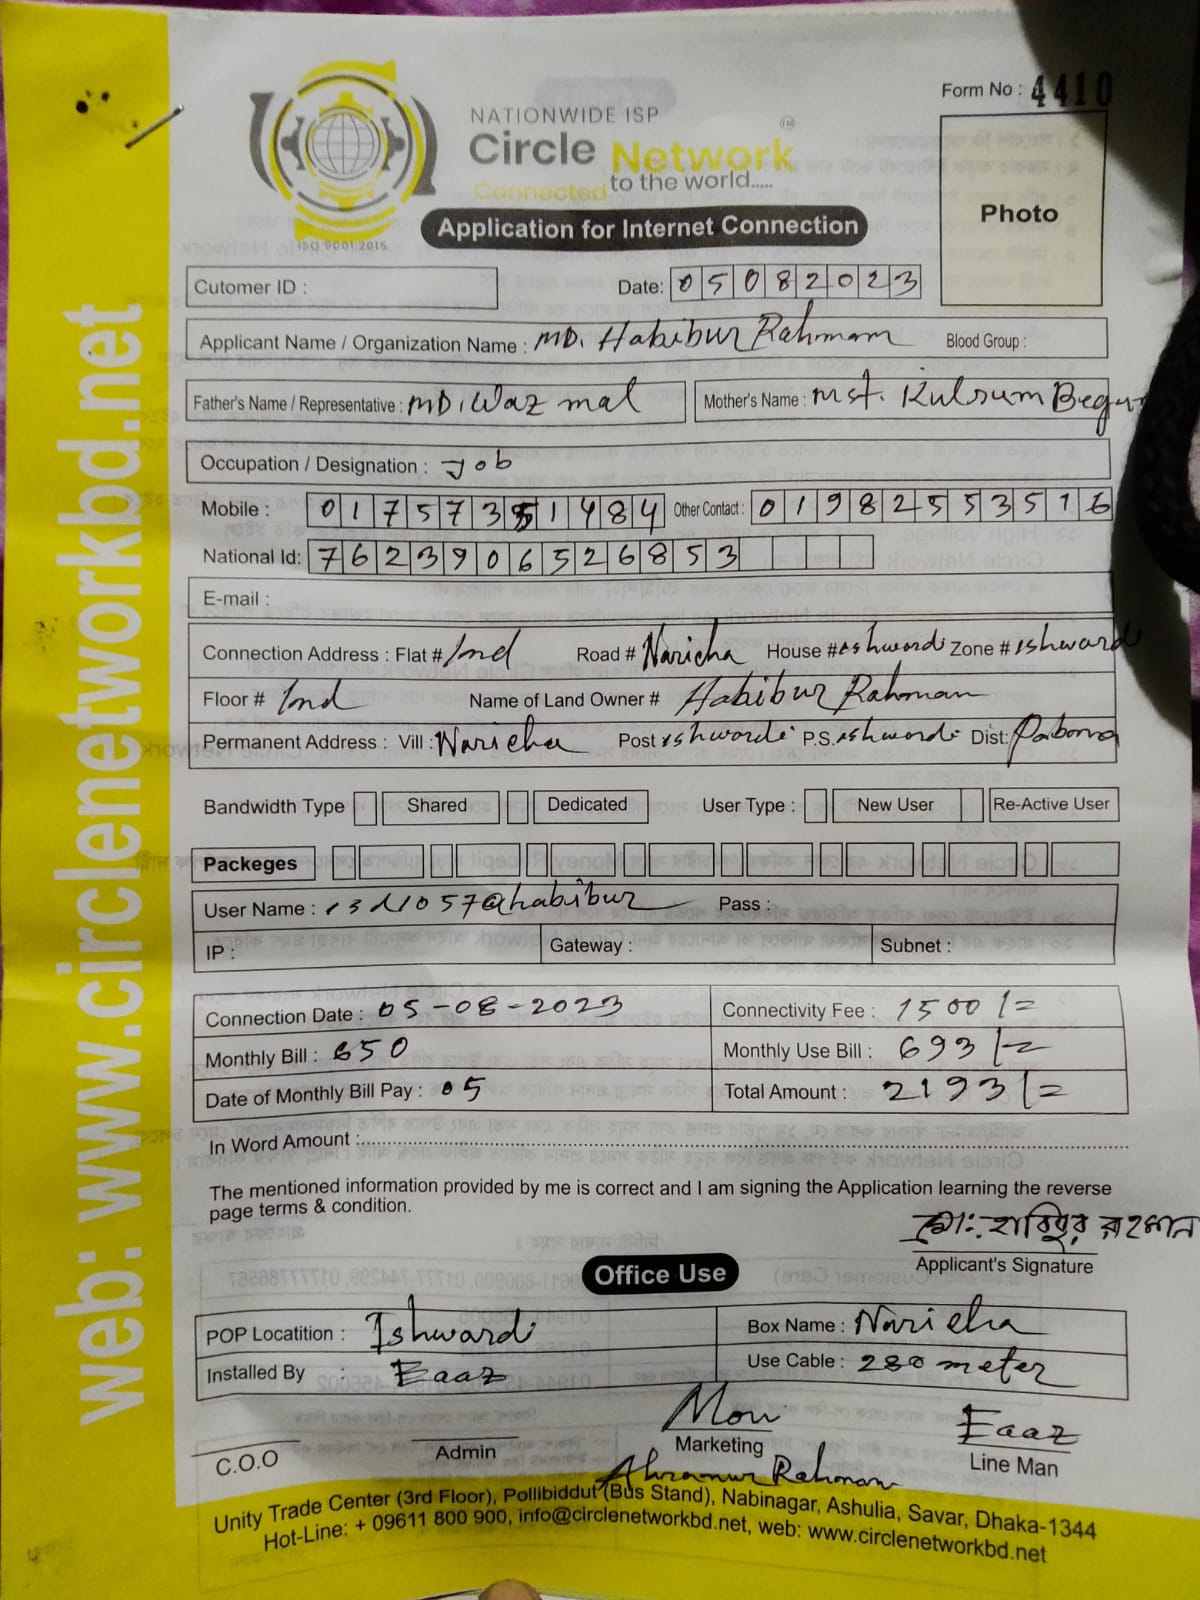 Form No : 4410
NATIONWIDE ISP
Circle Network TM
Connected to the world.....
ISO 9001:2015
Application for Internet Connection
Photo
Cutomer ID :
Date: 05082023
Applicant Name / Organization Name : MD. Habibur Rahmam Blood Group :
Father's Name / Representative : MD. Waz mal Mother's Name : Mst. Kulsum Begum
Occupation / Designation : Job
Mobile : 01757351484 Other Contact : 01982553516
National Id: 7623906526853
E-mail :
Connection Address : Flat # Ind Road # Naricha House # eshwardi Zone # ishwardi
Floor # Ind Name of Land Owner # Habibur Rahman
Permanent Address : Vill : Naricha Post ishwardi P.S. ishwardi Dist: Pabna
Bandwidth Type Shared Dedicated User Type : New User Re-Active User
Packeges
User Name : 13d1057@habibur Pass :
IP : Gateway : Subnet :
Connection Date : 05-08-2023 Connectivity Fee : 1500/=
Monthly Bill : 650 Monthly Use Bill : 693/=
Date of Monthly Bill Pay : 05 Total Amount : 2193/=
In Word Amount :
The mentioned information provided by me is correct and I am signing the Application learning the reverse
page terms & condition.
মোঃ হাবিবুর রহমান
Applicant's Signature
Office Use
POP Locatition : Ishwardi Box Name : Naricha
Installed By : Eaaz Use Cable : 280 meter
Mon Eaaz
C.O.O Admin Marketing Line Man
Rahman
Unity Trade Center (3rd Floor), Pollibiddut (Bus Stand), Nabinagar, Ashulia, Savar, Dhaka-1344
Hot-Line: + 09611 800 900, info@circlenetworkbd.net, web: www.circlenetworkbd.net
web: www.circlenetworkbd.net